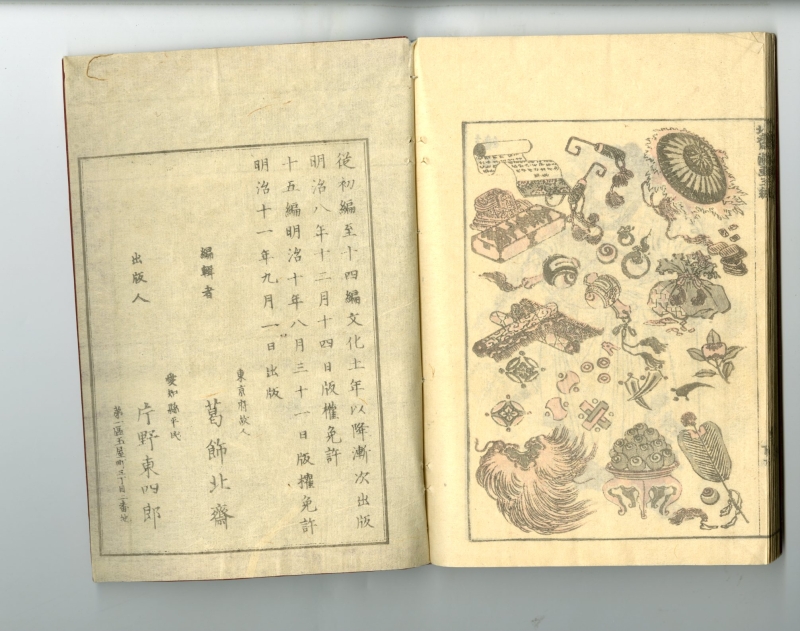 從初編至十四編文化士年以降漸次出版
明治八年十二月十四日版權免許
十五編明治十年八月三十一日版權免許
明治十一年九月一日出版
編輯者
東京府故人
葛飾北齋
出版人
愛知縣平民
片野東四郎
第一區玉屋町三丁目一番地